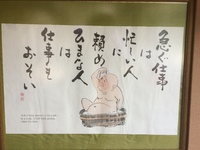 急ぐ仕事
は
忙しい人
に
頼め
ひまな人
は
仕事も
おそい